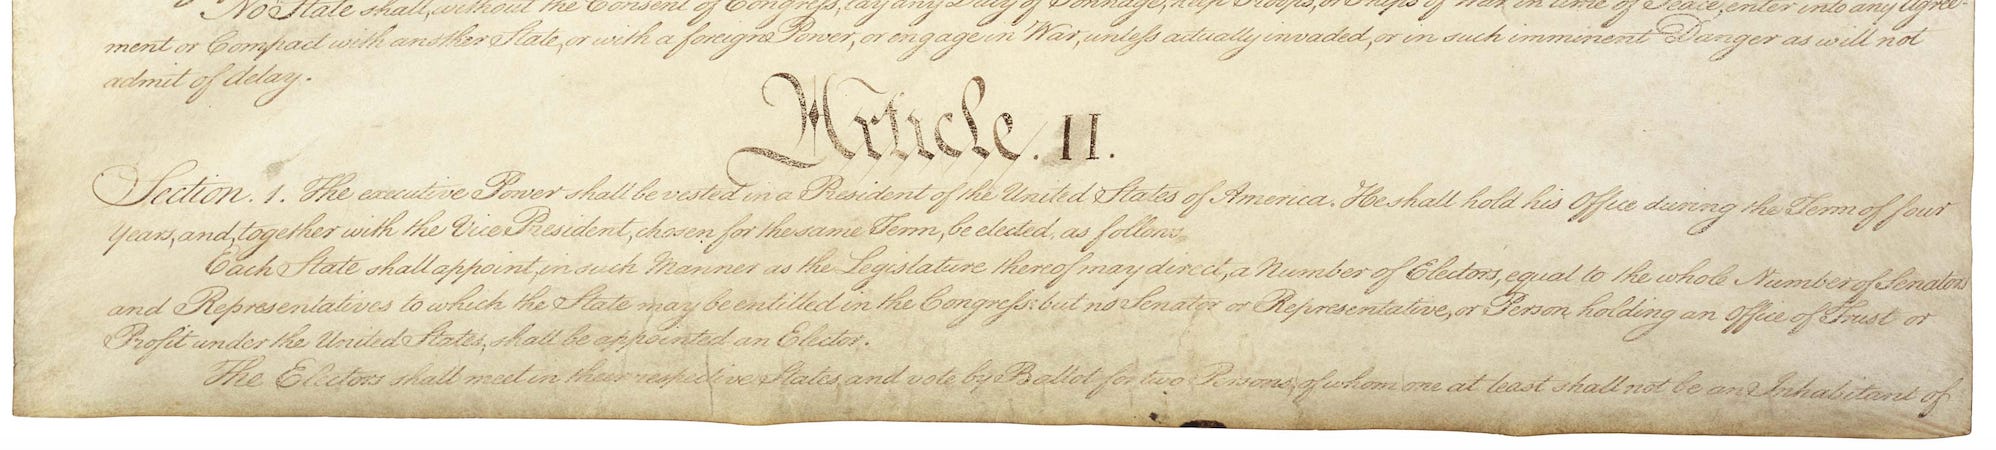 No State shall, without the Consent of Congress, lay any Duty of Tonnage, keep Troops, or Ships of War in time of Peace, enter into any Agree-
ment or Compact with another State, or with a foreign Power, or engage in War, unless actually invaded, or in such imminent Danger as will not
admit of delay.
Article. II.
Section. 1. The executive Power shall be vested in a President of the United States of America. He shall hold his Office during the Term of four
Years, and, together with the Vice President, chosen for the same Term, be elected, as follows
Each State shall appoint, in such Manner as the Legislature thereof may direct, a Number of Electors, equal to the whole Number of Senators
and Representatives to which the State may be entitled in the Congress: but no Senator or Representative, or Person holding an Office of Trust or
Profit under the United States, shall be appointed an Elector.
The Electors shall meet in their respective States, and vote by Ballot for two Persons, of whom one at least shall not be an Inhabitant of